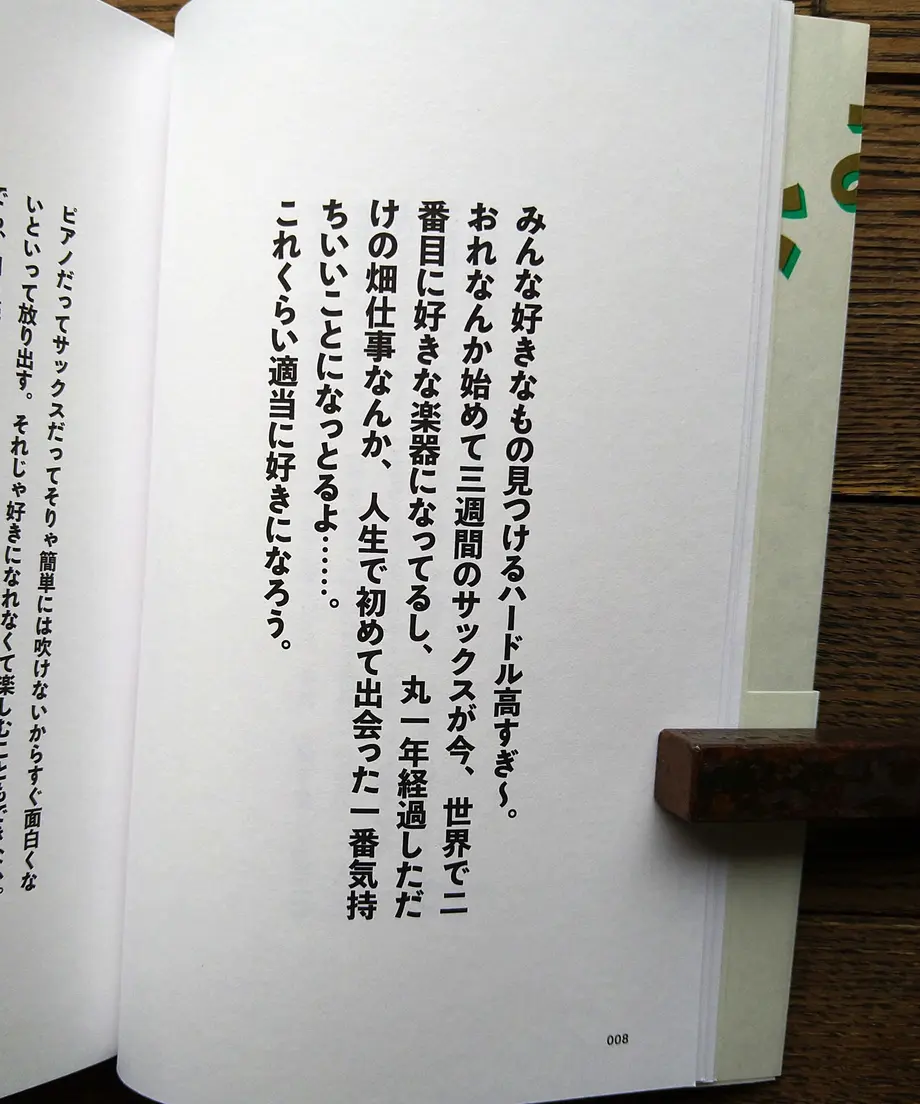 みんな好きなもの見つけるハードル高すぎ〜。
おれなんか始めて三週間のサックスが今、世界で二
番目に好きな楽器になってるし、丸一年経過しただ
けの畑仕事なんか、人生で初めて出会った一番気持
ちいいことになっとるよ……。
これくらい適当に好きになろう。
008
ピアノだってサックスだってそりゃ簡単には吹けないからすぐ面白くな
いといって放り出す。それじゃ好きになれなくて楽しむこともできない。